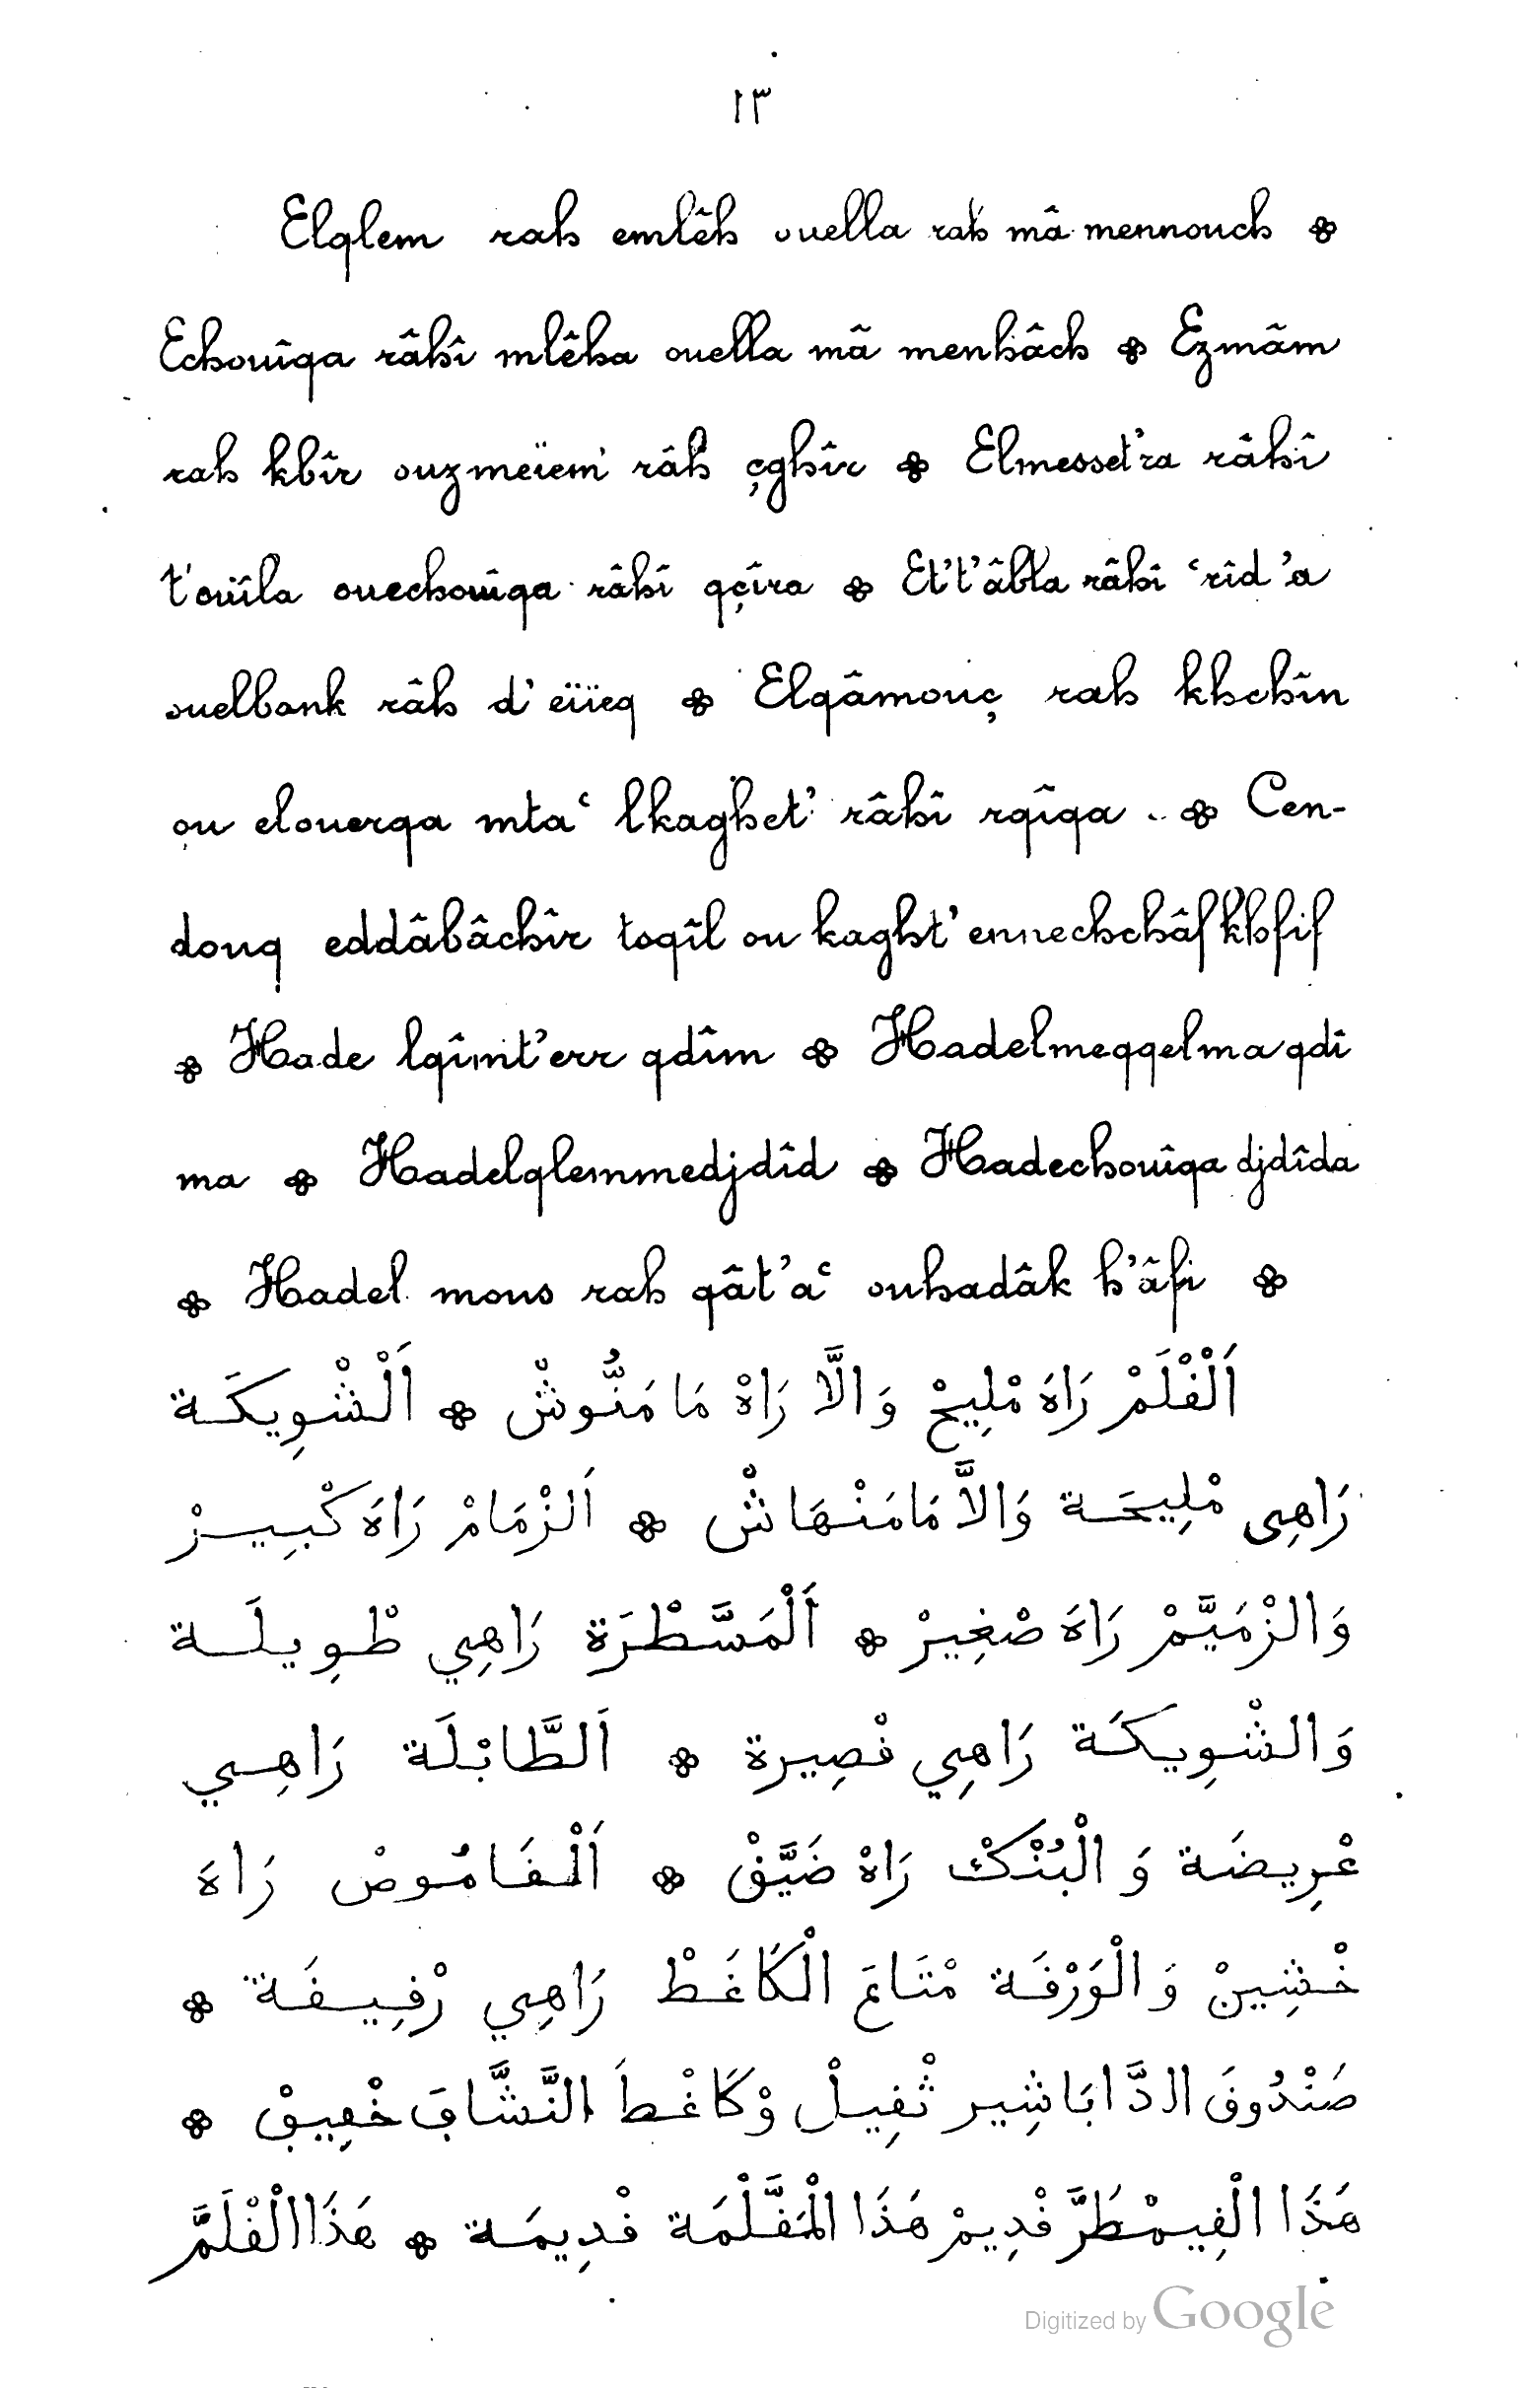 ١٣
Elqlem rah emlêh ouella rah mâ mennouch ✤
Echouîqa râhî mlêha ouella mâ menhâch ✤ Ezmâm
rah kbîr ouzmeïem râh çghîr ✤ Elmesset'ra râhî
t'ouîla ouechouîqa râhî qçîra ✤ Et't'âbla râhî ʿrîd'a
ouelbank râh d'eïïeq ✤ Elqâmouç rah khchîn
ou elouerqa mtaʿ lkaghet' râhî rqîqa ✤ Cen-
douq eddâbâchîr tsqîl ou kaght' ennechchâf khfif
✤ Hade lqîmt'err qdîm ✤ Hadelmeqqelma qdî
ma ✤ Hadelqlemmedjdîd ✤ Hadechouîqa djdîda
✤ Hadel mous rah qât'aʿ ouhadâk h'âfi ✤
اَلْفْلَمْ رَاهَ مْلِيحْ وَالَّا رَاهْ مَا مَنُّوشْ ✤ اَلْشْوِيكَة
رَاهِى مْلِيحَة وَالاَّ مَامَنْهَاشْ ✤ اَلزْمَامْ رَاهَ كْبِيرْ
وَالزْمَيَّمْ رَاهَ صْغِيرْ ✤ اَلْمَسَّطْرَة رَاهِي طْوِيلَة
وَالشْوِيكَة رَاهِي فْصِيرة ✤ اَلطَّابْلَة رَاهِي
عْرِيضَة وَ الْبُنْكْ رَاهْ ضَيَّفْ ✤ اَلْفَامُوصْ رَاهَ
خْشِينْ وَالْوَرْفَة مْتَاعَ الْكَاغَطْ رَاهِي رْفِيفَة ✤
صَنْدُوفَ الدَّابَاشِير ثْفِيلْ وْكَاغْطَ النَّشَّافَ خْفِيڢْ ✤
هَذَا الْفِيمْطَرَّ فْدِيمْ هَذَا الْمَفَّلْمَة فْدِيمَة ✤ هَذَاالْفْلَمَّ
Digitized by Google